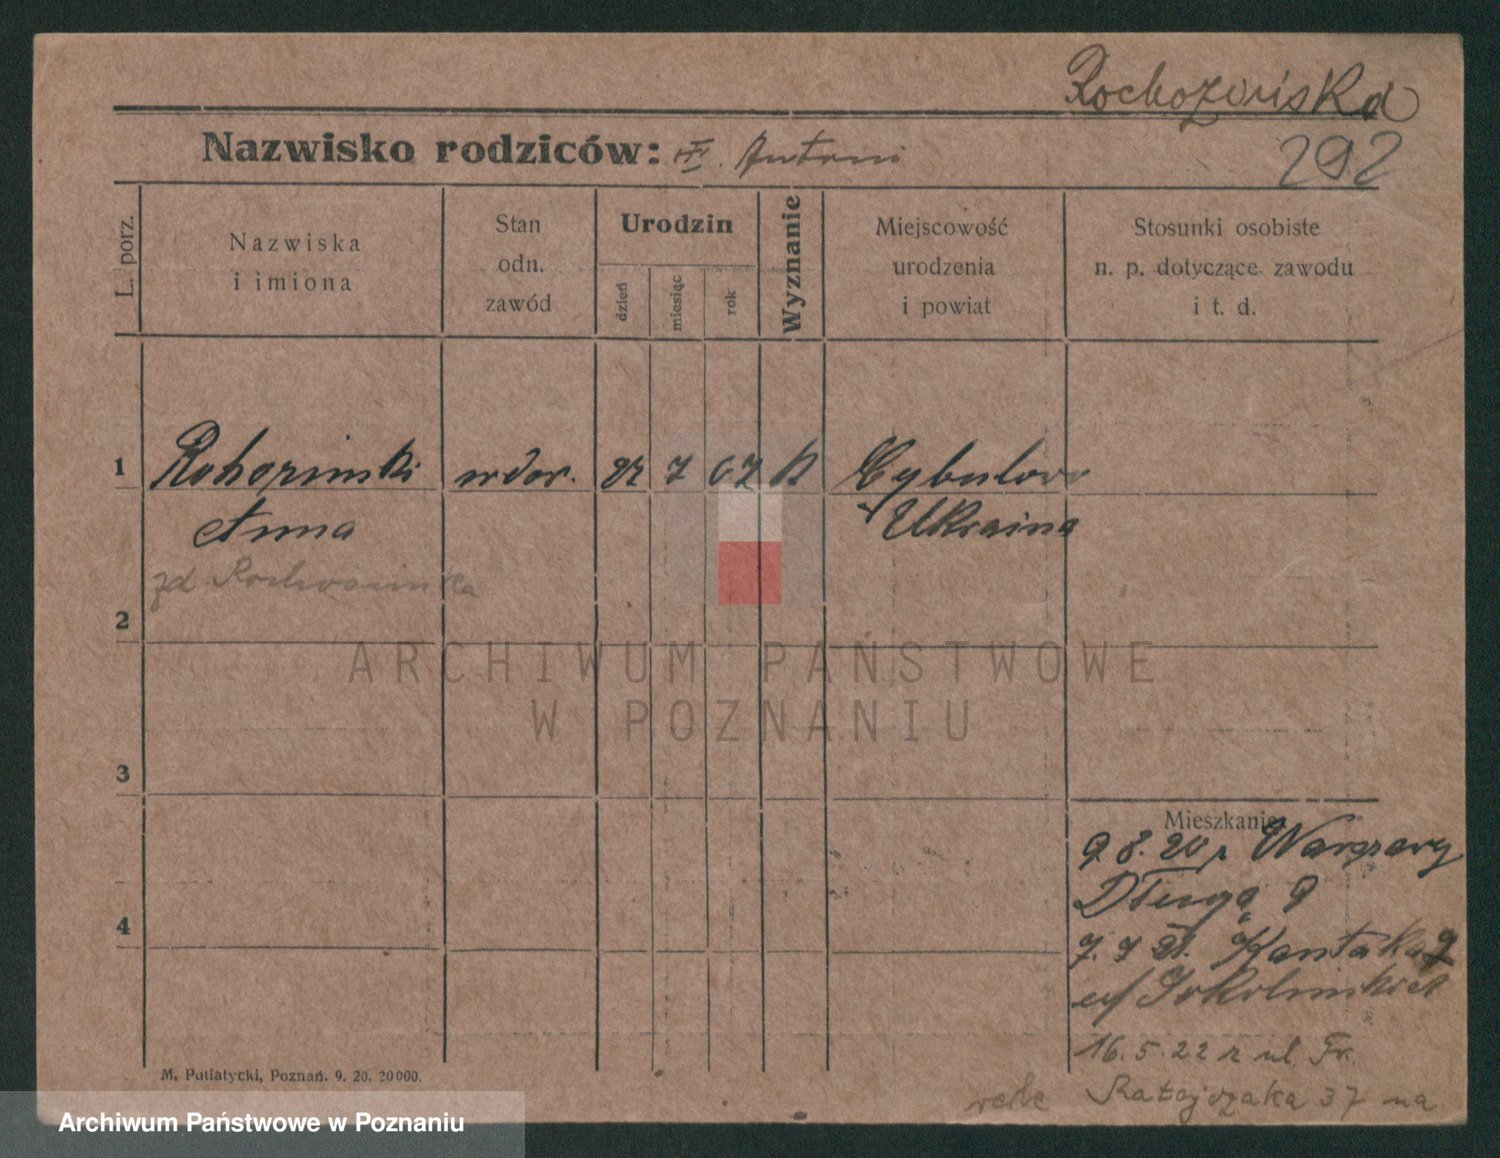 Rochozińska
292
Nazwisko rodziców: III. Antoni
L. porz.
Nazwiska
i imiona
Stan
odn.
zawód
Urodzin
dzień
miesiąc
rok
Wyznanie
Miejscowość
urodzenia
i powiat
Stosunki osobiste
n. p. dotyczące zawodu
i t. d.
1 Rohozinski wdow. 7 07 K Cybulowo
Anna Ukraina
zd Rochozinska
2
3
4
Mieszkanie:
9.8.20 z Warszawy
Długa 9
7.7 21. Kantaka
u/ Sokolnickich
16.5.22 z ul Fr.
Ratajczaka 37 na
M. Putiatycki, Poznań. 9. 20. 20000.
ARCHIWUM PAŃSTWOWE
W POZNANIU
Archiwum Państwowe w Poznaniu